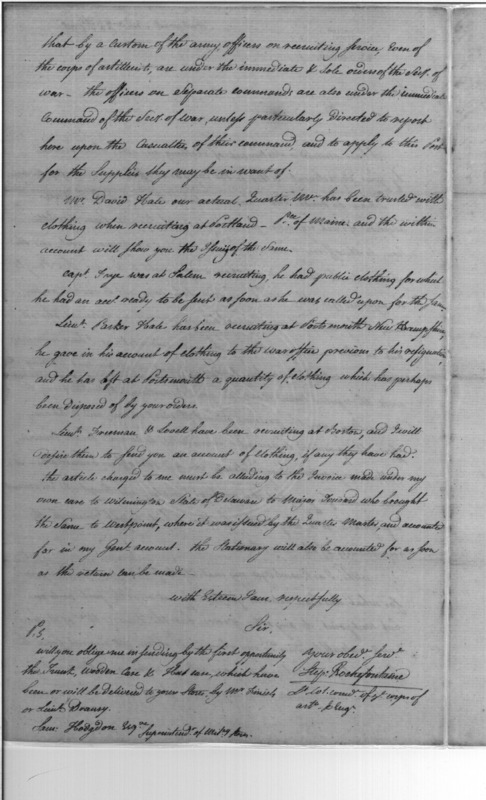 that by a Custom of the army officers on recruiting service, Even of
the corps of artillerists, are under the immediate & Sole orders of the Secr. of
war — the officers on Separate commands are also under the immediate
Command of the Secr. of War, unless particularly directed to report
here upon the Casualties of their command, and to apply to this Post
for the Supplies they may be in want of.
Mr. David Hale our actual Quarter Mr. has been trusted with
clothing when recruiting at Portland — Pce. of Maine and the within
account will show you the Issuing of the Same.
Capt. Frye was at Salem recruiting, he had public clothing for which
he had an acct ready to be sent as soon as he was called upon for the Same.
Lieut. Parker Hale has been recruiting at Portsmouth New Hampshire,
he gave in his account of clothing to the war office previous to his resignation,
and he has left at Portsmouth a quantity of clothing which has perhaps
been disposed of by your orders.
Lieuts. Freeman & Lovell have been recruiting at Boston, and I will
desire them to send you an account of Clothing, if any they have had.
The article charged to me must be alluding to the Invoice made under my
own care to Wilmington State of Delaware to Major Freeard who brought
the Same to Westpoint, where it was issued by the Quarter Master, and accounted
for in my Genl. account. the Stationary will also be accounted for as soon
as the return can be made —
with Esteem I am respectfully
Sir.
your obedt. Servt.
Step. Rochefontaine
Lt. Col. comdt. of ye corps of
artts. & Engrs.
P.S.
will you oblige me in sending by the first opportunity
the Trunk, wooden Case & Flat case, which have
been or will be delivered to your Store by Mr. Finiels
or Lieut. Dransy.
Saml. Hodgdon Esqre. Superintendt. of Milty Stores.